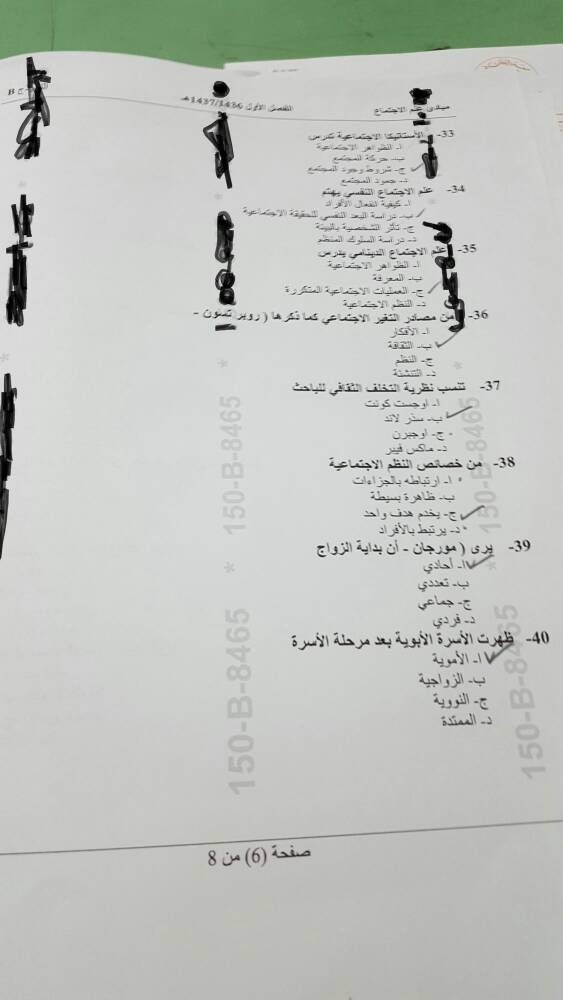 مبادئ علم الاجتماع
الفصل الأول 1437/1436هـ
B
33- الأستاتيكا الاجتماعية تدرس
ا- الظواهر الاجتماعية
ب- حركة المجتمع
ج- شروط وجود المجتمع
د- جمود المجتمع
34- علم الاجتماع النفسي يهتم
ا- كيفية انفعال الأفراد
ب- دراسة البعد النفسي للحقيقة الاجتماعية
ج- تأثر الشخصية بالبيئة
د- دراسة السلوك المنظم
35- علم الاجتماع الدينامي يدرس
ا- الظواهر الاجتماعية
ب- المعرفة
ج- العمليات الاجتماعية المتكررة
د- النظم الاجتماعية
36- من مصادر التغير الاجتماعي كما ذكرها ( روبرتسون -
ا- الأفكار
ب- الثقافة
ج- النظم
د- التنشئة
37- تنسب نظرية التخلف الثقافي للباحث
ا- اوجست كونت
ب- سذر لاند
ج- اوجبرن
د- ماكس فيبر
38- من خصائص النظم الاجتماعية
ا- ارتباطه بالجزاءات
ب- ظاهرة بسيطة
ج- يخدم هدف واحد
د- يرتبط بالأفراد
39- يرى ( مورجان - أن بداية الزواج
ا- أحادي
ب- تعددي
ج- جماعي
د- فردي
40- ظهرت الأسرة الأبوية بعد مرحلة الأسرة
ا- الأموية
ب- الزواجية
ج- النووية
د- الممتدة
150-B-8465 * 150-B-8465 *
150-B-8465 * 150-B-8465 *
صفحة (6) من 8